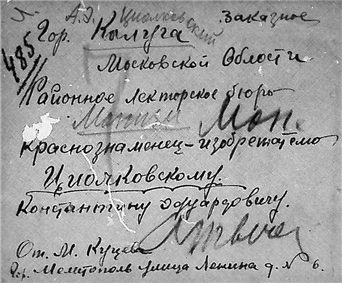 Л.
А.Э. Циолковский Заказное
485
Гор. Калуга
Московской Области
Районное Лекторское бюро
Мотии Моп.
краснознаменец-изобретателю
Циолковскому
Константину Эдуардовичу.
Ответ
От. М. Куцева
гор. Мелитополь улица Ленина д. № 6.